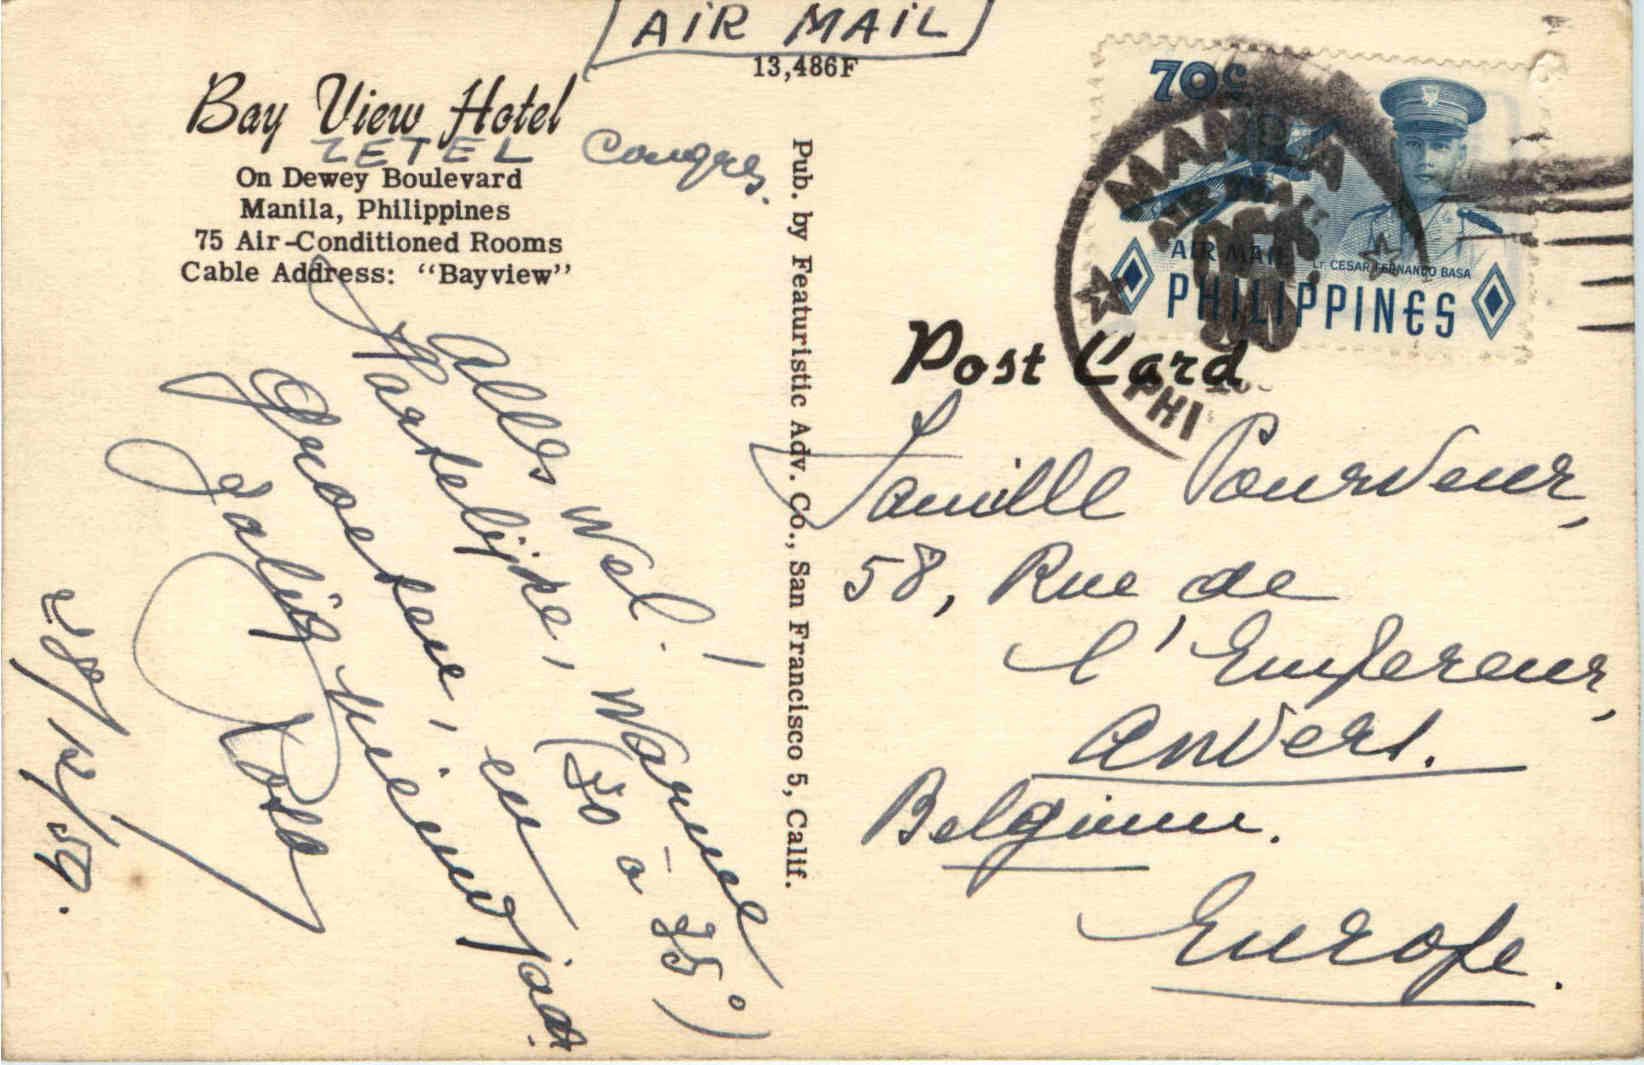 AIR MAIL
13,486F
Bay View Hotel
ZETEL Congres.
On Dewey Boulevard
Manila, Philippines
75 Air-Conditioned Rooms
Cable Address: "Bayview"
Alles Wel!
Hartelijke, Warme
(30 à 35°)
Groeten, en
Zalig Nieuwjaar
28/12/59.
Pub. by Featuristic Adv. Co., San Francisco 5, Calif.
70c
AIR MAIL
Lt. CESAR FERNANDO BASA
PHILIPPINES
MANILA
PHI
Post Card
Famille Pourveur,
58, Rue de
l'Empereur,
Anvers.
Belgium.
Europe.